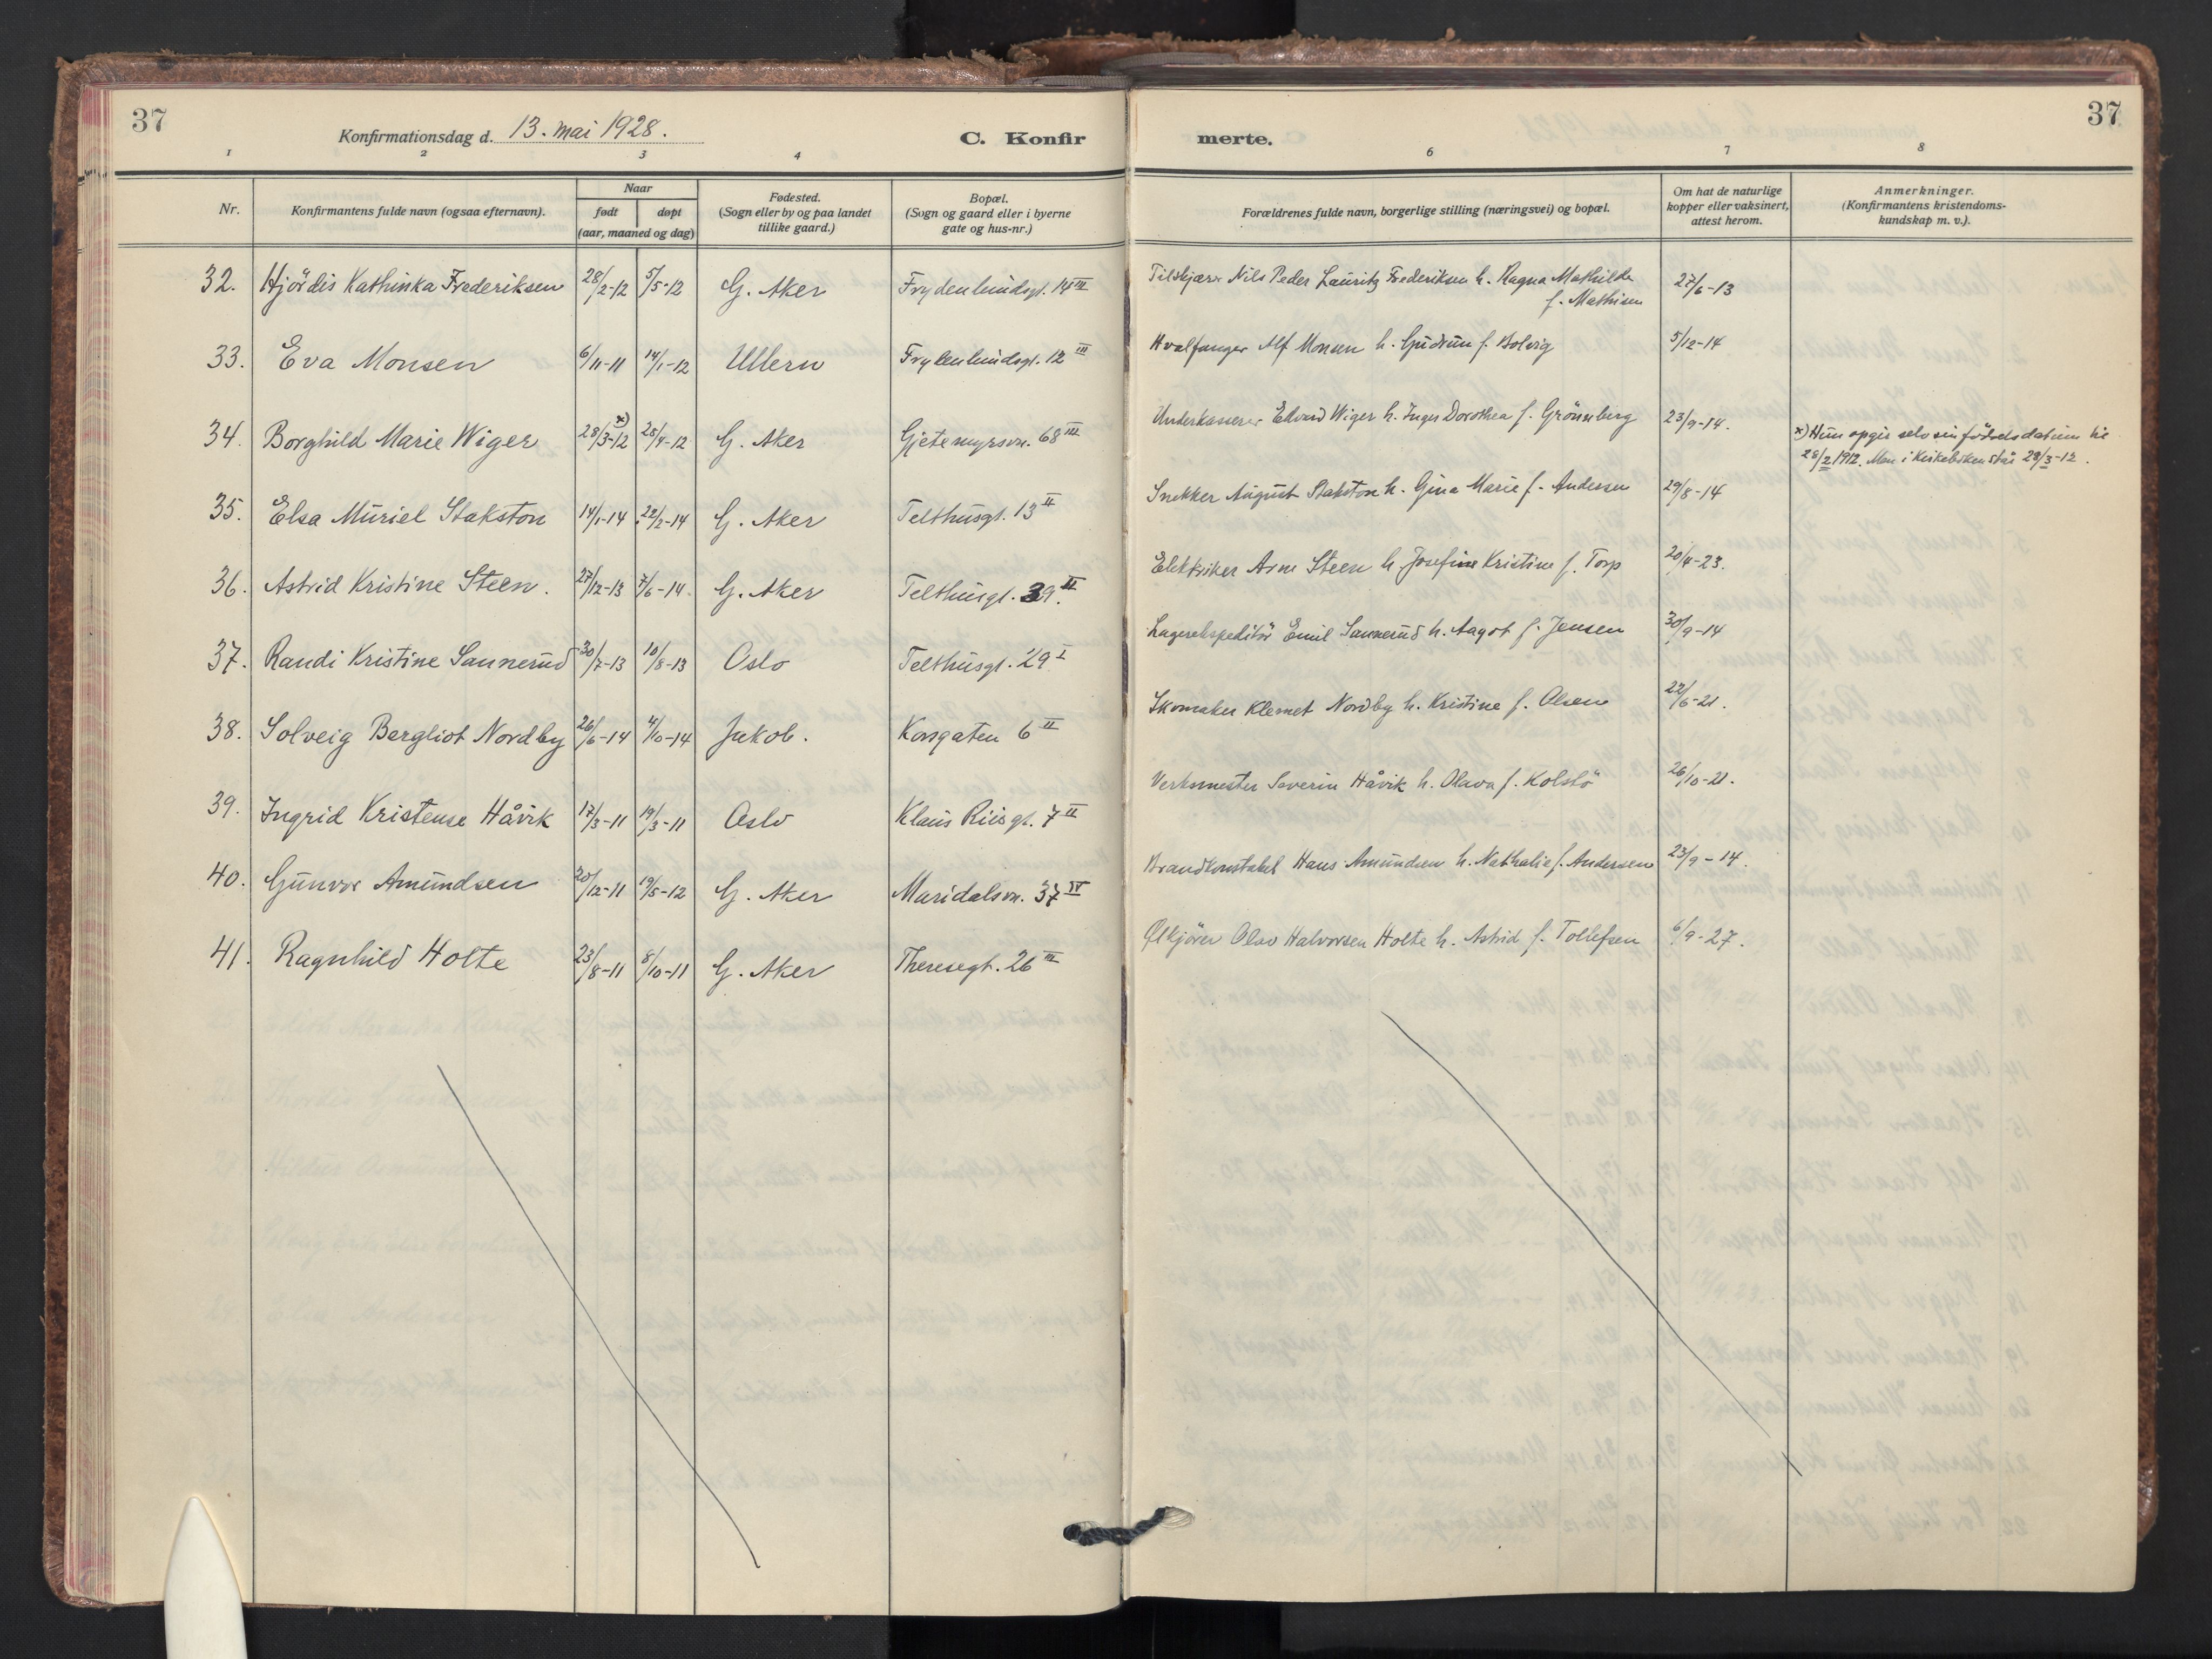 37
Konfirmationsdag d. 13. mai 1928.
C. Konfir
merte.
37
1 2 3 4 6 7 8
Nr.
Konfirmantens fulde navn (ogsaa efternavn).
Naar
født døpt
(aar, maaned og dag)
Fødested.
(Sogn eller by og paa landet
tillike gaard.)
Bopæl.
(Sogn og gaard eller i byerne
gate og hus-nr.)
Forældrenes fulde navn, borgerlige stilling (næringsvei) og bopæl.
Om hat de naturlige
kopper eller vaksinert,
attest herom.
Anmerkninger.
(Konfirmantens kristendoms-
kundskap m. v.).
32. Hjördis Kathinka Frederiksen 28/2-12 5/5-12 G. Aker Frydenlundsgt. 14 III
Tilskjærer Nils Peder Lauritz Frederiksen h. Ragna Mathilde
f. Mathisen 27/6-13
33. Eva Monsen 6/11-11 14/1-12 Ullern Frydenlundsgt. 12 III
Hvalfanger Alf Monsen h. Gudrun f. Bolvig 5/12-14
34. Borghild Marie Wiger 28/3-12 x) 28/4-12 G. Aker Gjetemyrsvn. 68 III
Underkasserer Edvard Wiger h. Inger Dorothea f. Grönneberg 23/9-14.
x) Hun opgir selv sin födselsdatum til
28/2 1912. Men i Kirkeboken står 28/3-12.
35. Elsa Muriel Stakston 14/1-14 22/2-14 G. Aker Telthusgt. 13 II
Snekker August Stakston h. Gina Marie f. Andersen 29/8-14
36. Astrid Kristine Steen. 27/12-13 7/6-14 G. Aker Telthusgt. 39. II
Elektriker Arne Steen h. Josefine Kristine f. Torp 20/4-23.
37. Randi Kristine Sannerud 30/7-13 10/8-13 Oslo Telthusgt. 29 I
Lagerekspeditör Emil Sannerud h. Aagot f. Jensen 30/9-14
38. Solveig Bergliot Nordby 26/6-14 4/10-14 Jakob. Korsgaten 6 II
Skomaker Klemet Nordby h. Kristine f. Olsen 22/6-21.
39. Ingrid Kristense Håvik 17/3-11 19/3-11 Oslo Klaus Riisgt. 7 II
Verksmester Severin Håvik h. Olava f. Kolstö 26/10-21.
40. Gunvor Amundsen 20/12-11 19/5-12 G. Aker Maridalsvn. 37 IV
Brandkonstabel Hans Amundsen h. Nathalie f. Andersen 23/9-14.
41. Ragnhild Holte 23/8-11 8/10-11 G. Aker Theresegt. 26 III
Ølkjörer Olav Halvorsen Holte h. Astrid f. Tollefsen 6/9-27.